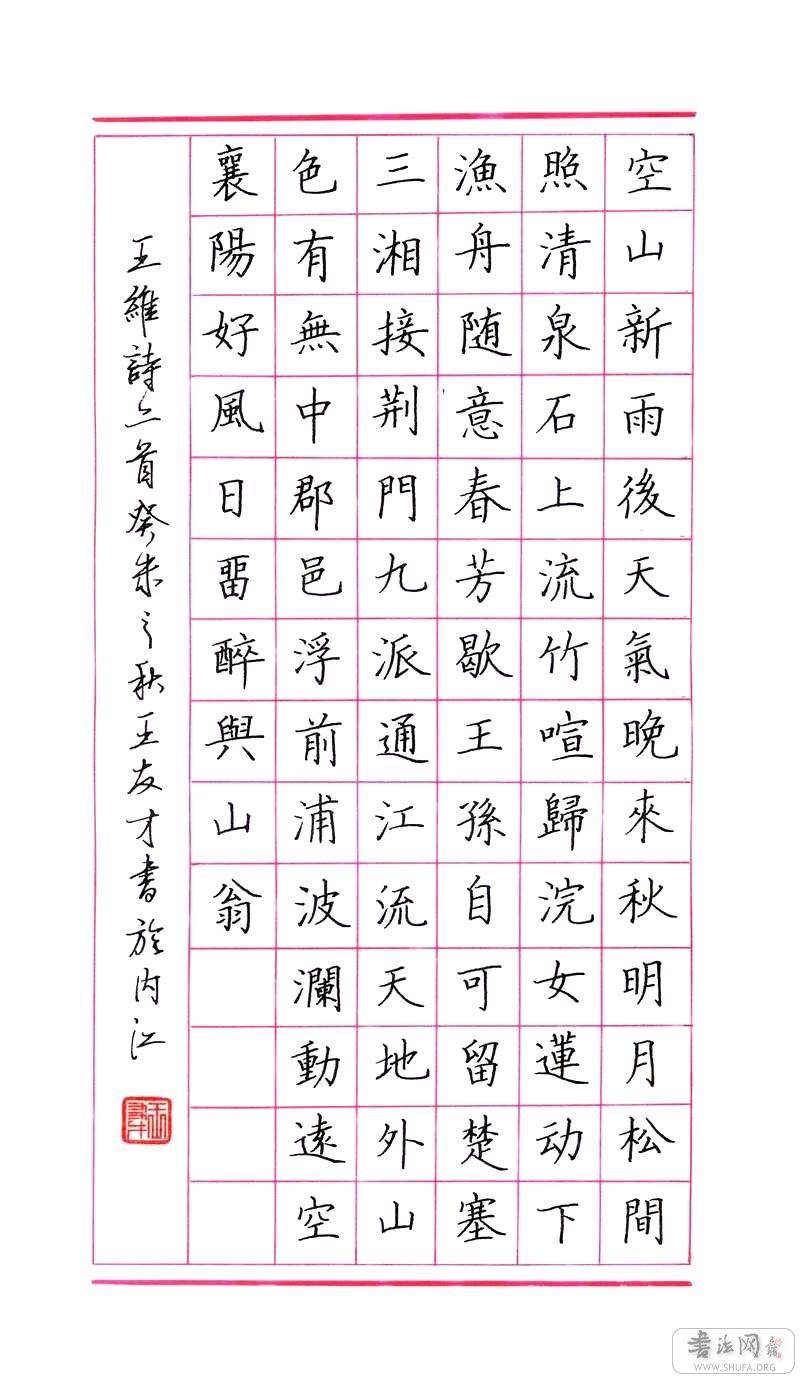 空山新雨後天氣晚來秋明月松間
照清泉石上流竹喧歸浣女蓮动下
漁舟随意春芳歇王孫自可留楚塞
三湘接荆門九派通江流天地外山
色有無中郡邑浮前浦波瀾動遠空
襄陽好風日畱醉與山翁
王維詩二首癸未之秋王友才書於内江
书法网
WWW.SHUFA.ORG